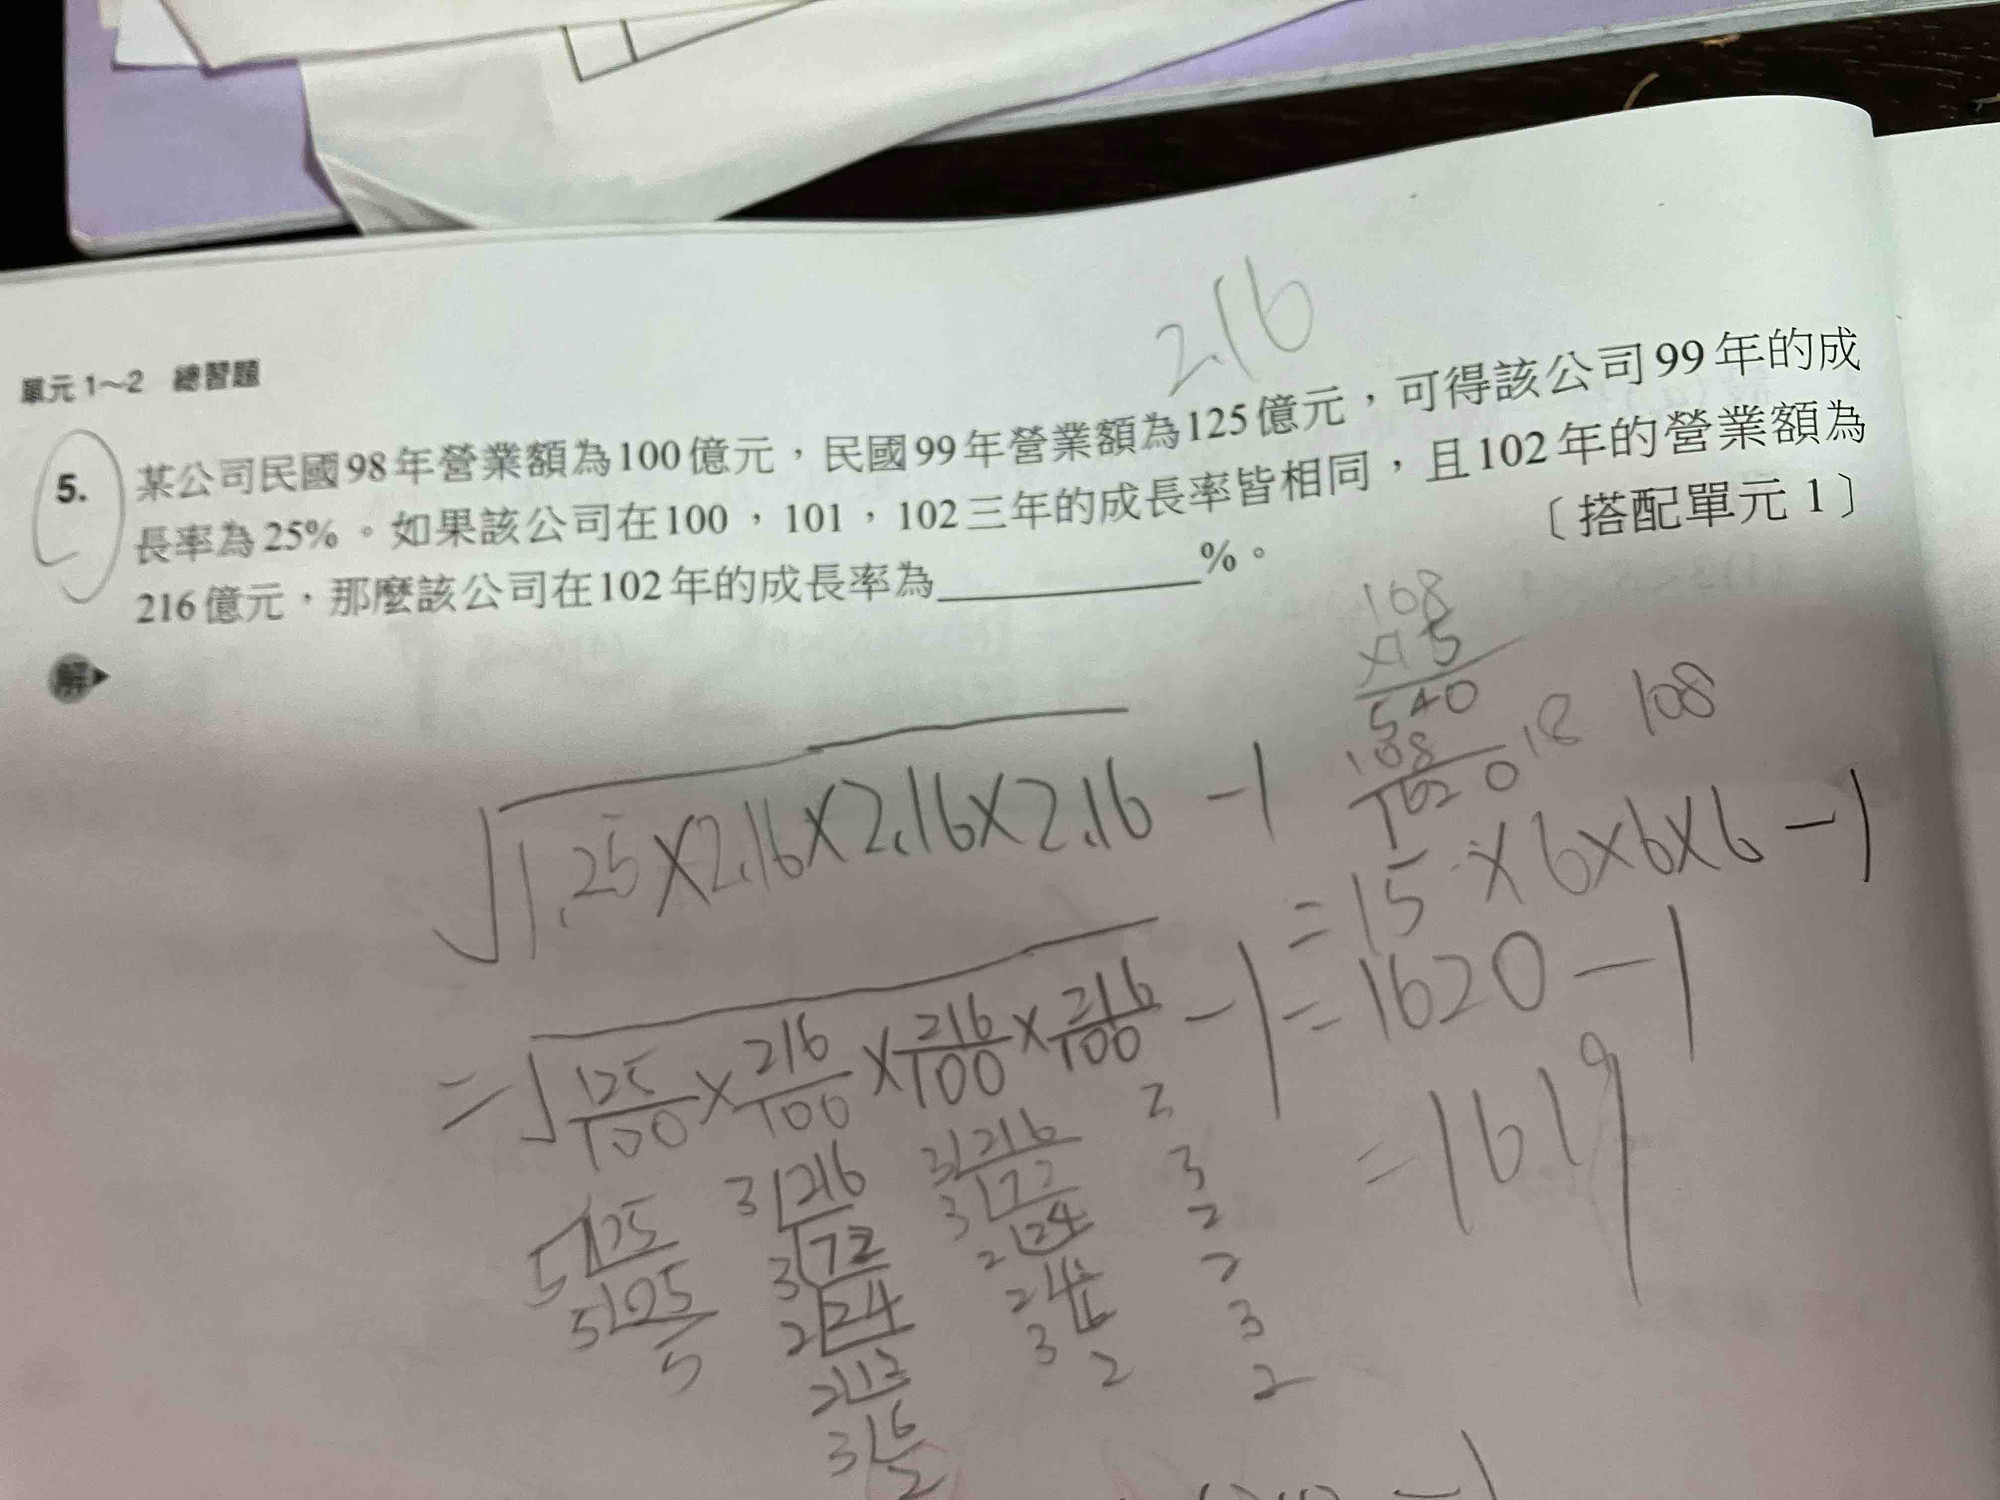 單元 1～2 總習題
2.16
5. 某公司民國98年營業額為100億元，民國99年營業額為125億元，可得該公司99年的成
長率為25%。如果該公司在100，101，102三年的成長率皆相同，且102年的營業額為
216億元，那麼該公司在102年的成長率為__________%。 〔搭配單元 1〕
解
108
×15
540
108
1620
18 108
√1.25×2.16×2.16×2.16 -1
=15×6×6×6-1
=√125/100×216/100×216/100×216/100 -1
=1620-1
=1619
5 125
5 25
5
3 216
3 72
2 24
2 12
3 6
2
3 216
3 72
2 24
2
3 6
2
2
3
2
2
3
2
-1